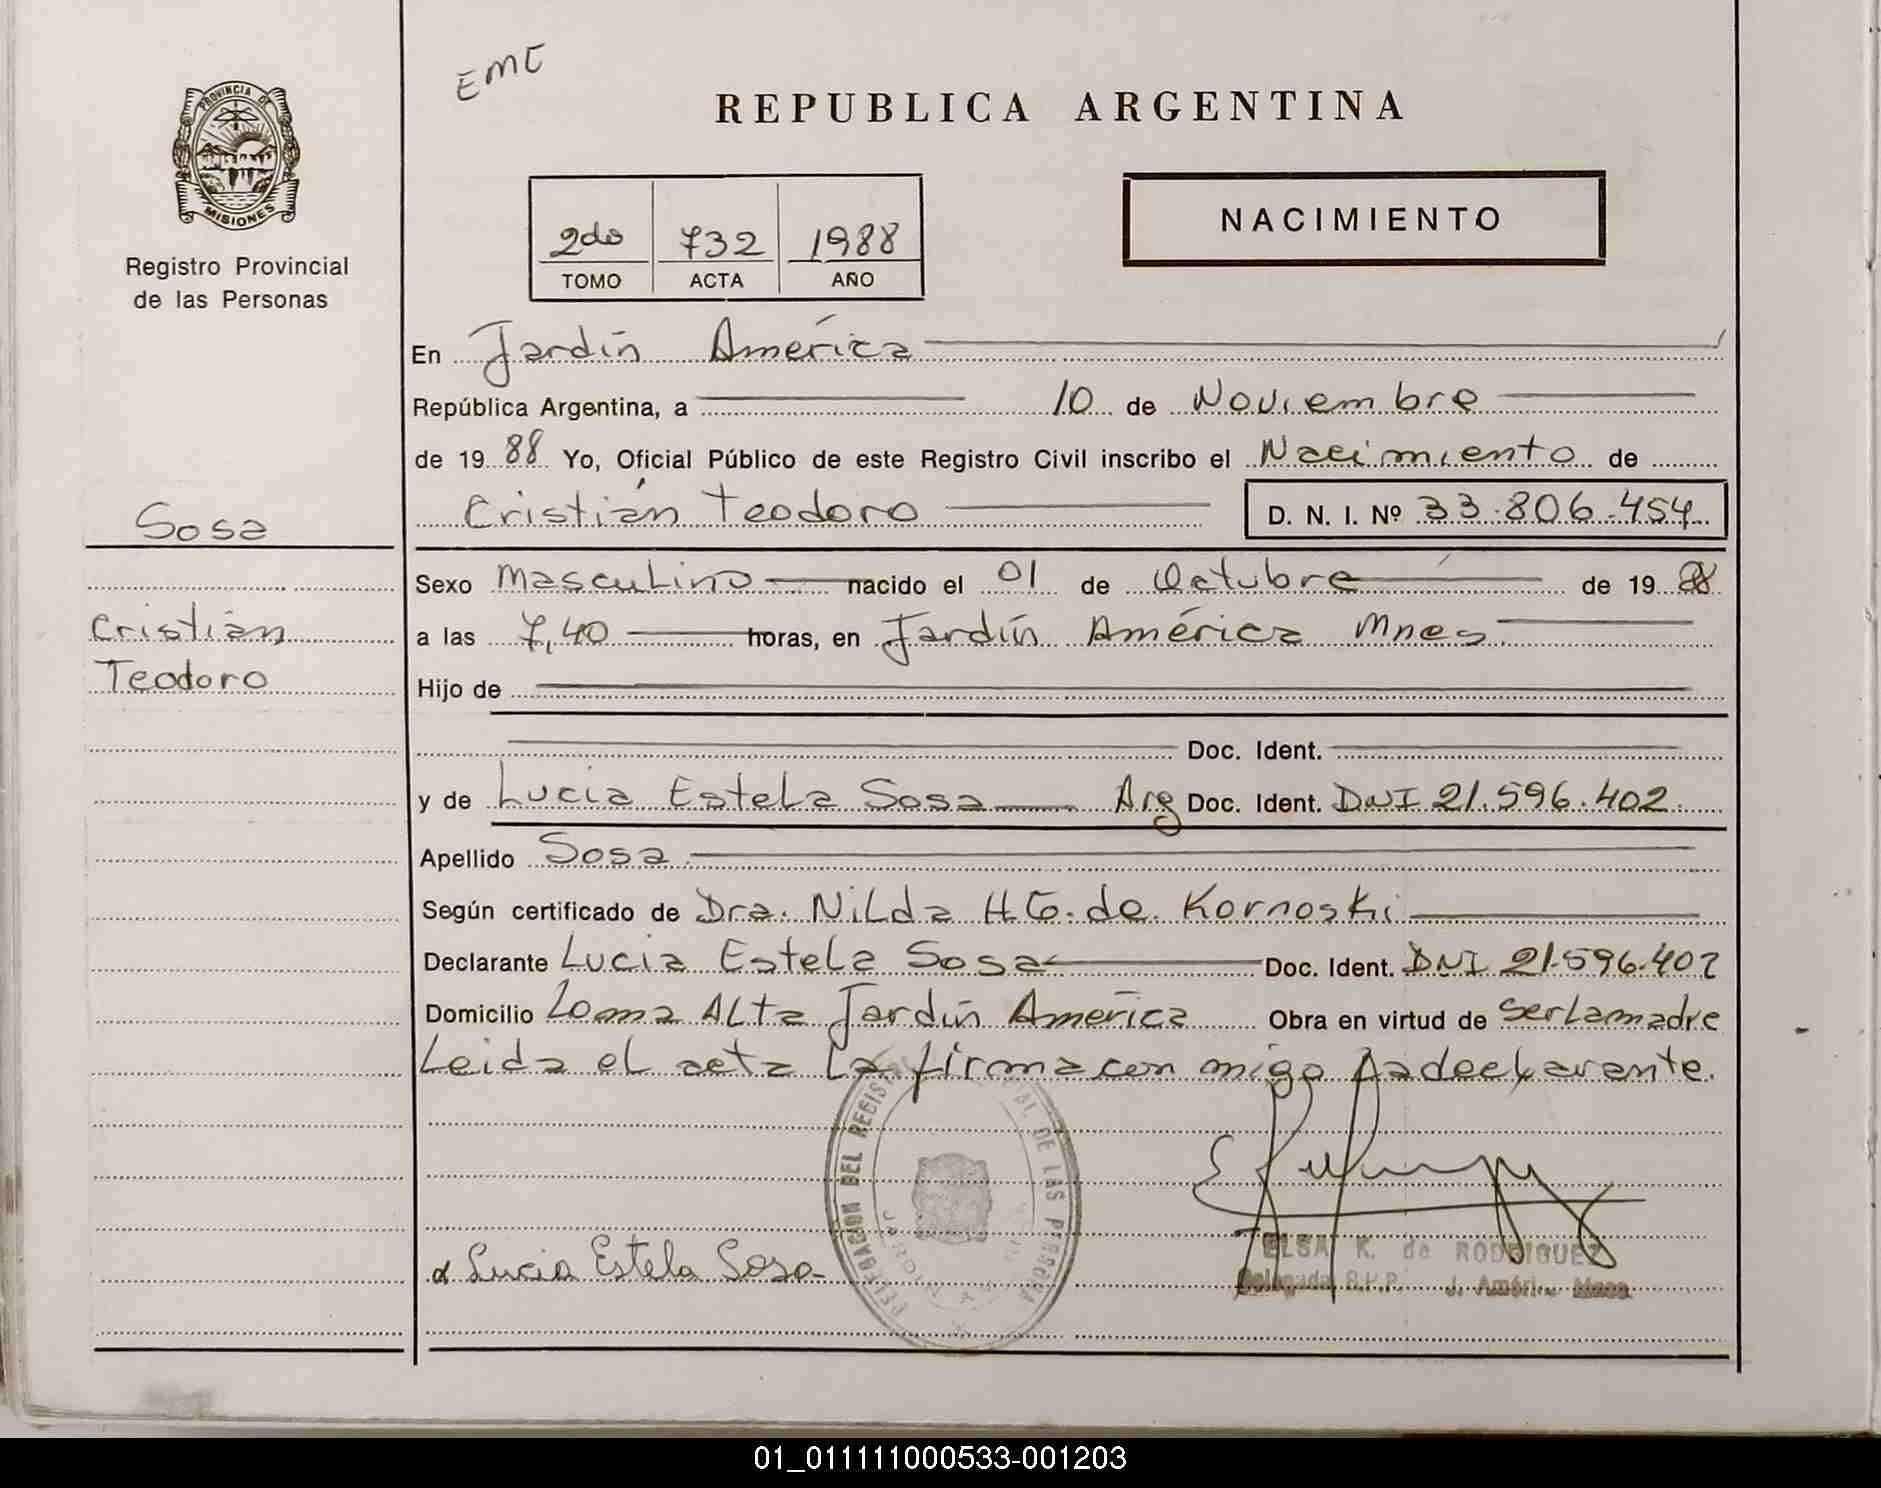 EME
PROVINCIA DE
MISIONES
Registro Provincial
de las Personas
REPUBLICA ARGENTINA
NACIMIENTO
2do 732 1988
TOMO ACTA AÑO
En Jardín América
República Argentina, a 10 de Noviembre
de 19 88 Yo, Oficial Público de este Registro Civil inscribo el Nacimiento de
Cristián Teodoro D. N. I. Nº 33.806.454
Sosa
Sexo Masculino nacido el 01 de Octubre de 19 88
Cristián
a las 7,40 horas, en Jardín América Mnes
Teodoro
Hijo de
Doc. Ident.
y de Lucia Estela Sosa Arg Doc. Ident. DNI 21.596.402
Apellido Sosa
Según certificado de Dra. Nilda H.G. de Kornoski
Declarante Lucia Estela Sosa Doc. Ident. DNI 21.596.402
Domicilio Loma Alta Jardín América Obra en virtud de ser la madre
Leida el acta la firma con migo la declarante.
DELEGACION DEL REGISTRO DE LAS PERSONAS
ELSA K. de RODRIGUEZ
Delegada R.P.P. J. Améri. Mnes
Lucia Estela Sosa
01_011111000533-001203